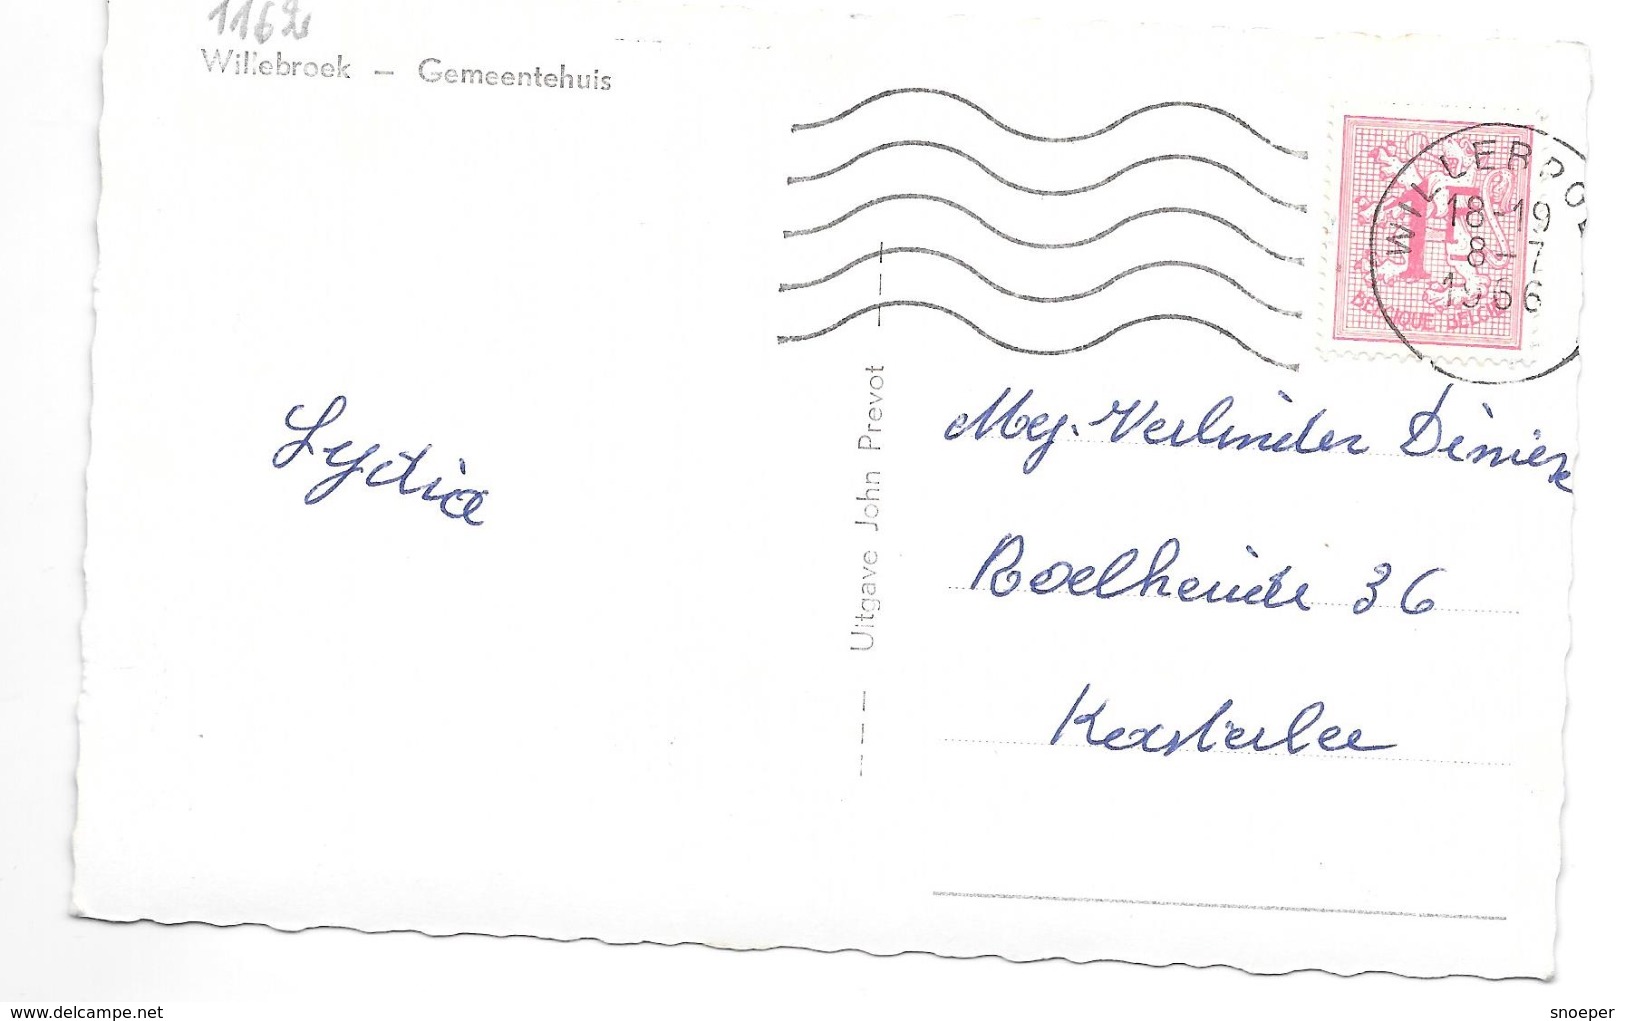 1162
Willebroek – Gemeentehuis
WILLEBROE
18-19
8-7
1966
1F
BELGIQUE BELGIË
Uitgave John Prevot
Lydia
Mej. Verlinden
36
Kasterlee
www.delcampe.net
snoeper